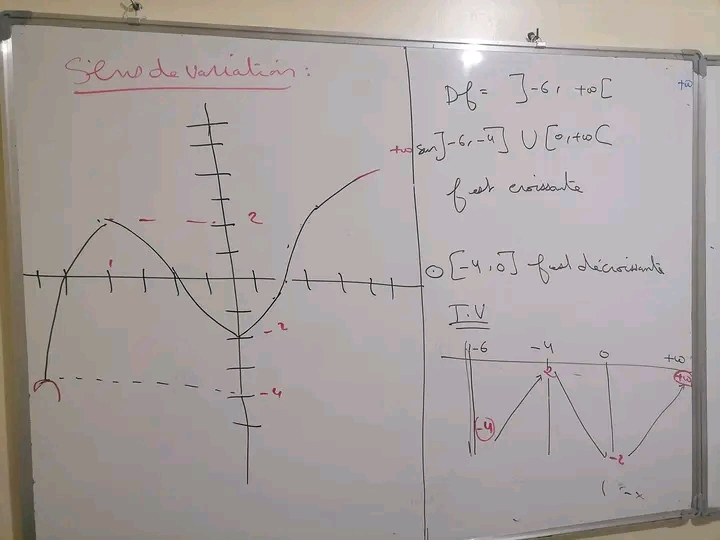 Sens de variation :
2
-2
-4
+∞
Df = ]-6, +∞[
sur ]-6, -4] U [0, +∞[
f est croissante
[-4, 0] f est décroissante
T.V
-6 -4 0 +∞
-4 2 -2 +∞